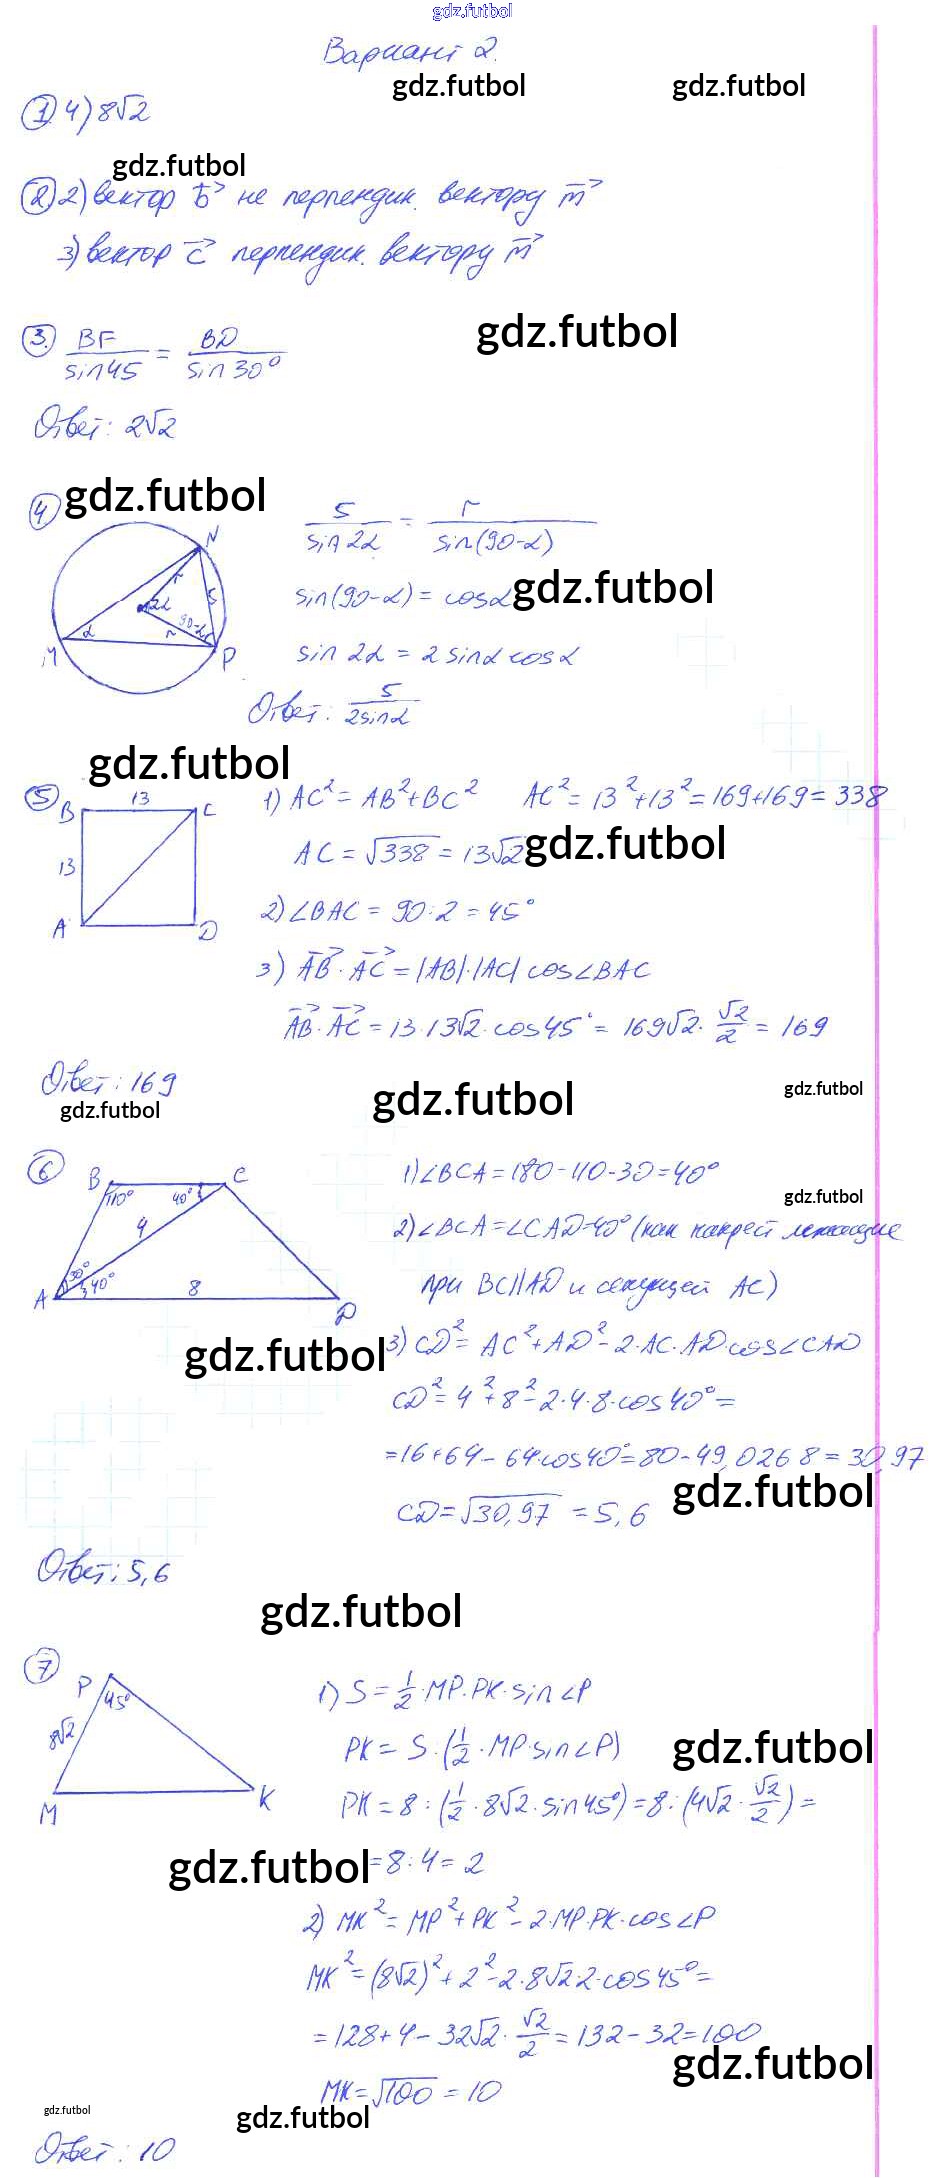 gdz.futbol
Вариант 2.
gdz.futbol gdz.futbol
1. 4) 8√2
gdz.futbol
2. 2) вектор b⃗ не перпендик. вектору m⃗
3) вектор c⃗ перпендик. вектору m⃗
gdz.futbol
3. BF/sin45 = BD/sin30°
Ответ: 2√2
gdz.futbol
4 5/sin2α = r/sin(90-α)
N
r 5
2α
gdz.futbol
sin(90-α) = cosα
90-α
M α r P
sin2α = 2sinα cosα
Ответ: 5/2sinα
gdz.futbol
5 B 13 C 1) AC² = AB²+BC² AC² = 13²+13² = 169+169 = 338
gdz.futbol
13 AC = √338 = 13√2
A D 2) ∠BAC = 90:2 = 45°
3) AB⃗ · AC⃗ = |AB|·|AC| cos∠BAC
AB⃗ · AC⃗ = 13·13√2·cos45° = 169√2 · √2/2 = 169
Ответ: 169
gdz.futbol gdz.futbol gdz.futbol
6 B C 1) ∠BCA = 180-110-30 = 40°
110° 40° gdz.futbol
4 2) ∠BCA = ∠CAD = 40° (как накрест лежащие
30° 40° 8
A D при BC||AD и секущей AC)
gdz.futbol 3) CD² = AC²+AD²-2·AC·AD·cos∠CAD
CD² = 4²+8²-2·4·8·cos40° =
= 16+64-64·cos40° = 80-49,0268 = 30,97
gdz.futbol
CD = √30,97 = 5,6
Ответ: 5,6
gdz.futbol
7 P 45° 1) S = 1/2·MP·PK·sin∠P
8√2 PK = S:(1/2·MP·sin∠P)
gdz.futbol
M K PK = 8:(1/2·8√2·sin45°) = 8:(4√2·√2/2) =
gdz.futbol = 8:4 = 2
2) MK² = MP²+PK²-2·MP·PK·cos∠P
MK² = (8√2)²+2²-2·8√2·2·cos45° =
= 128+4-32√2·√2/2 = 132-32 = 100
gdz.futbol
MK = √100 = 10
gdz.futbol gdz.futbol
Ответ: 10